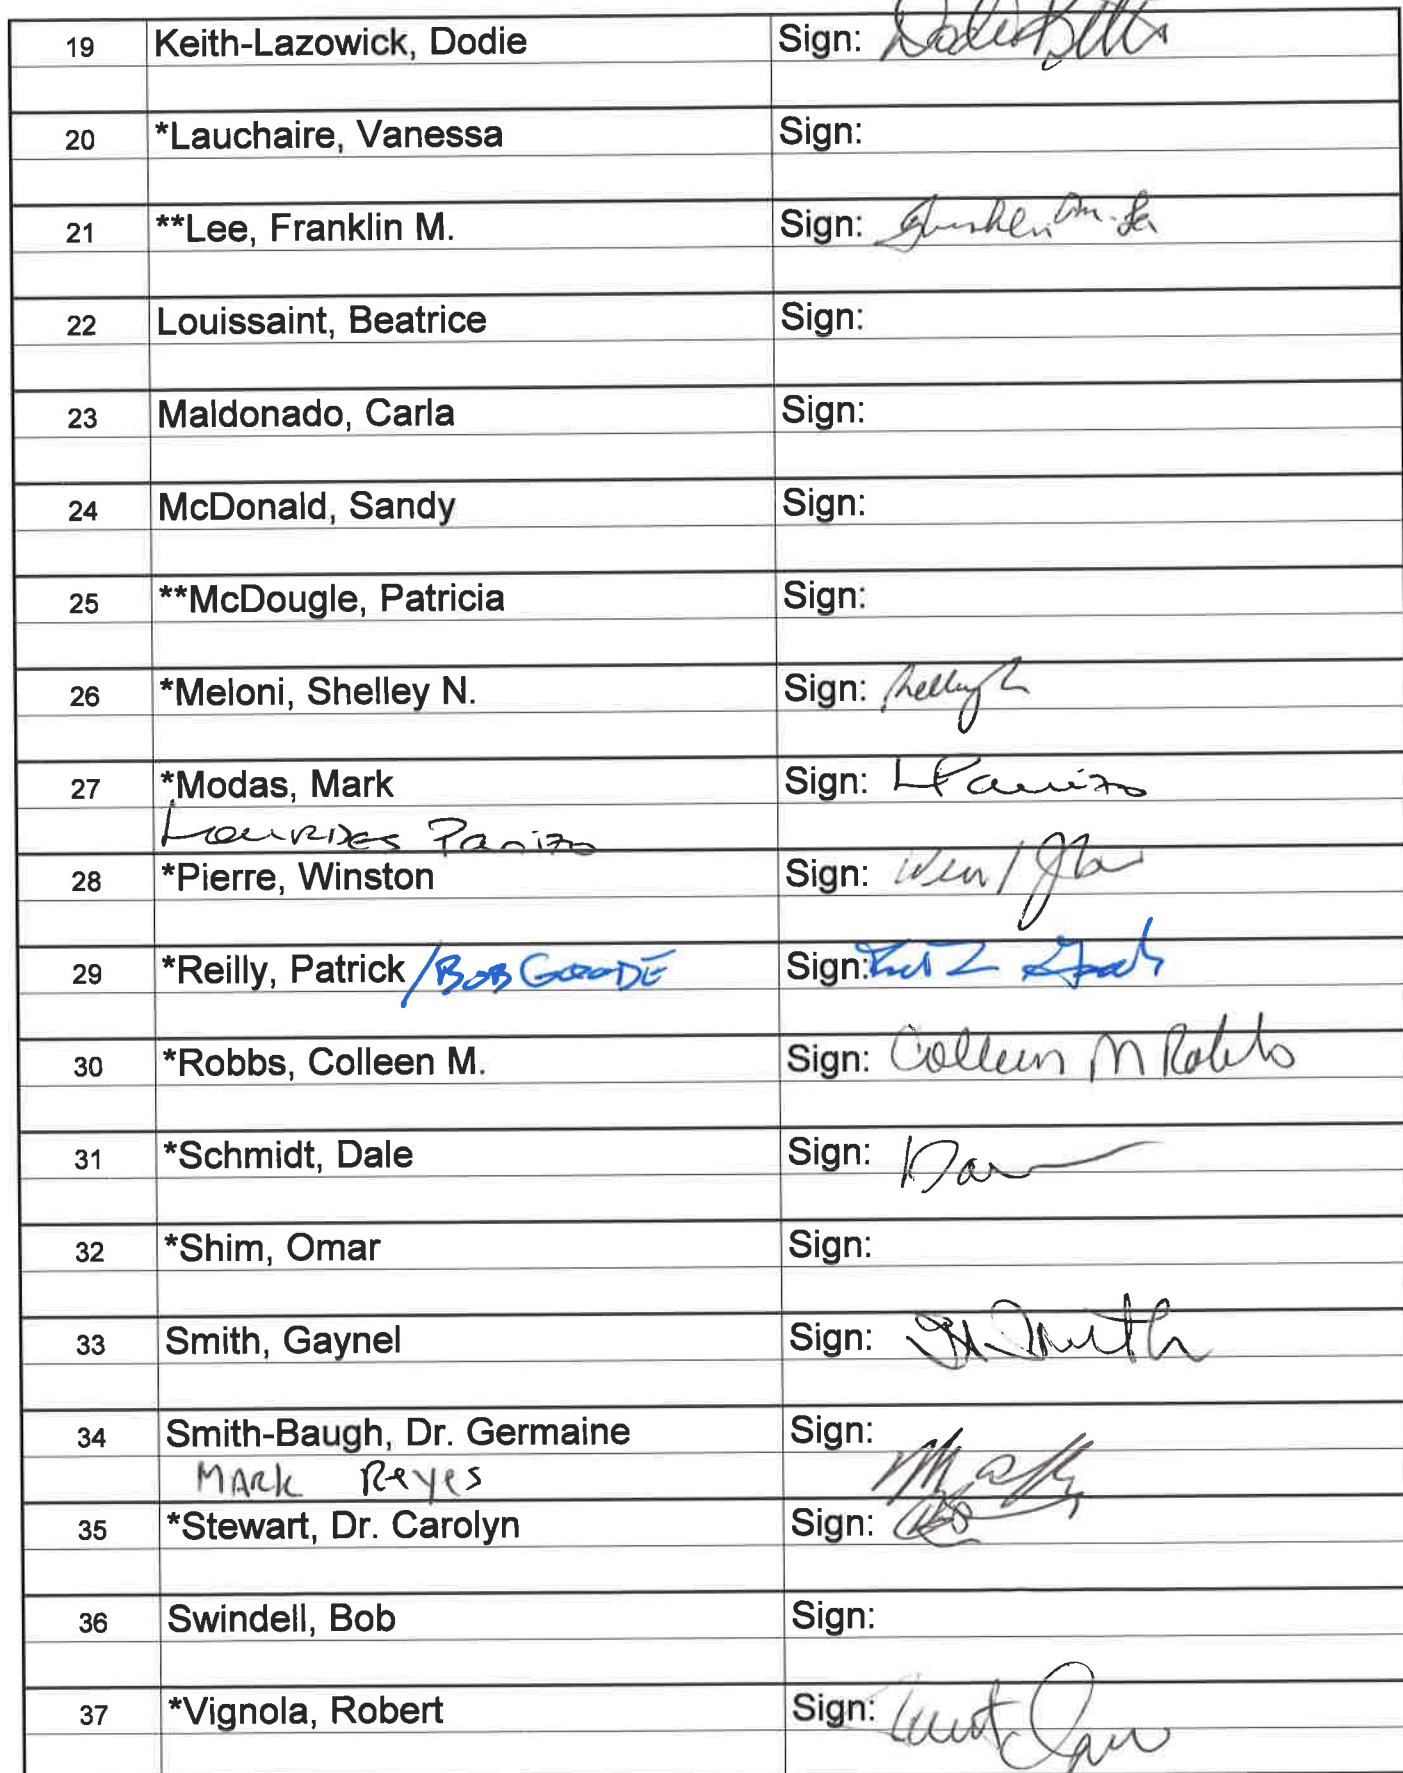 19 Keith-Lazowick, Dodie Sign:
20 *Lauchaire, Vanessa Sign:
21 **Lee, Franklin M. Sign:
22 Louissaint, Beatrice Sign:
23 Maldonado, Carla Sign:
24 McDonald, Sandy Sign:
25 **McDougle, Patricia Sign:
26 *Meloni, Shelley N. Sign:
27 *Modas, Mark Sign: LPanizo
Lourdes Panizo
28 *Pierre, Winston Sign:
29 *Reilly, Patrick /BOB GOODE Sign:
30 *Robbs, Colleen M. Sign: Colleen M Robbs
31 *Schmidt, Dale Sign:
32 *Shim, Omar Sign:
33 Smith, Gaynel Sign:
34 Smith-Baugh, Dr. Germaine Sign:
MARK Reyes
35 *Stewart, Dr. Carolyn Sign:
36 Swindell, Bob Sign:
37 *Vignola, Robert Sign: